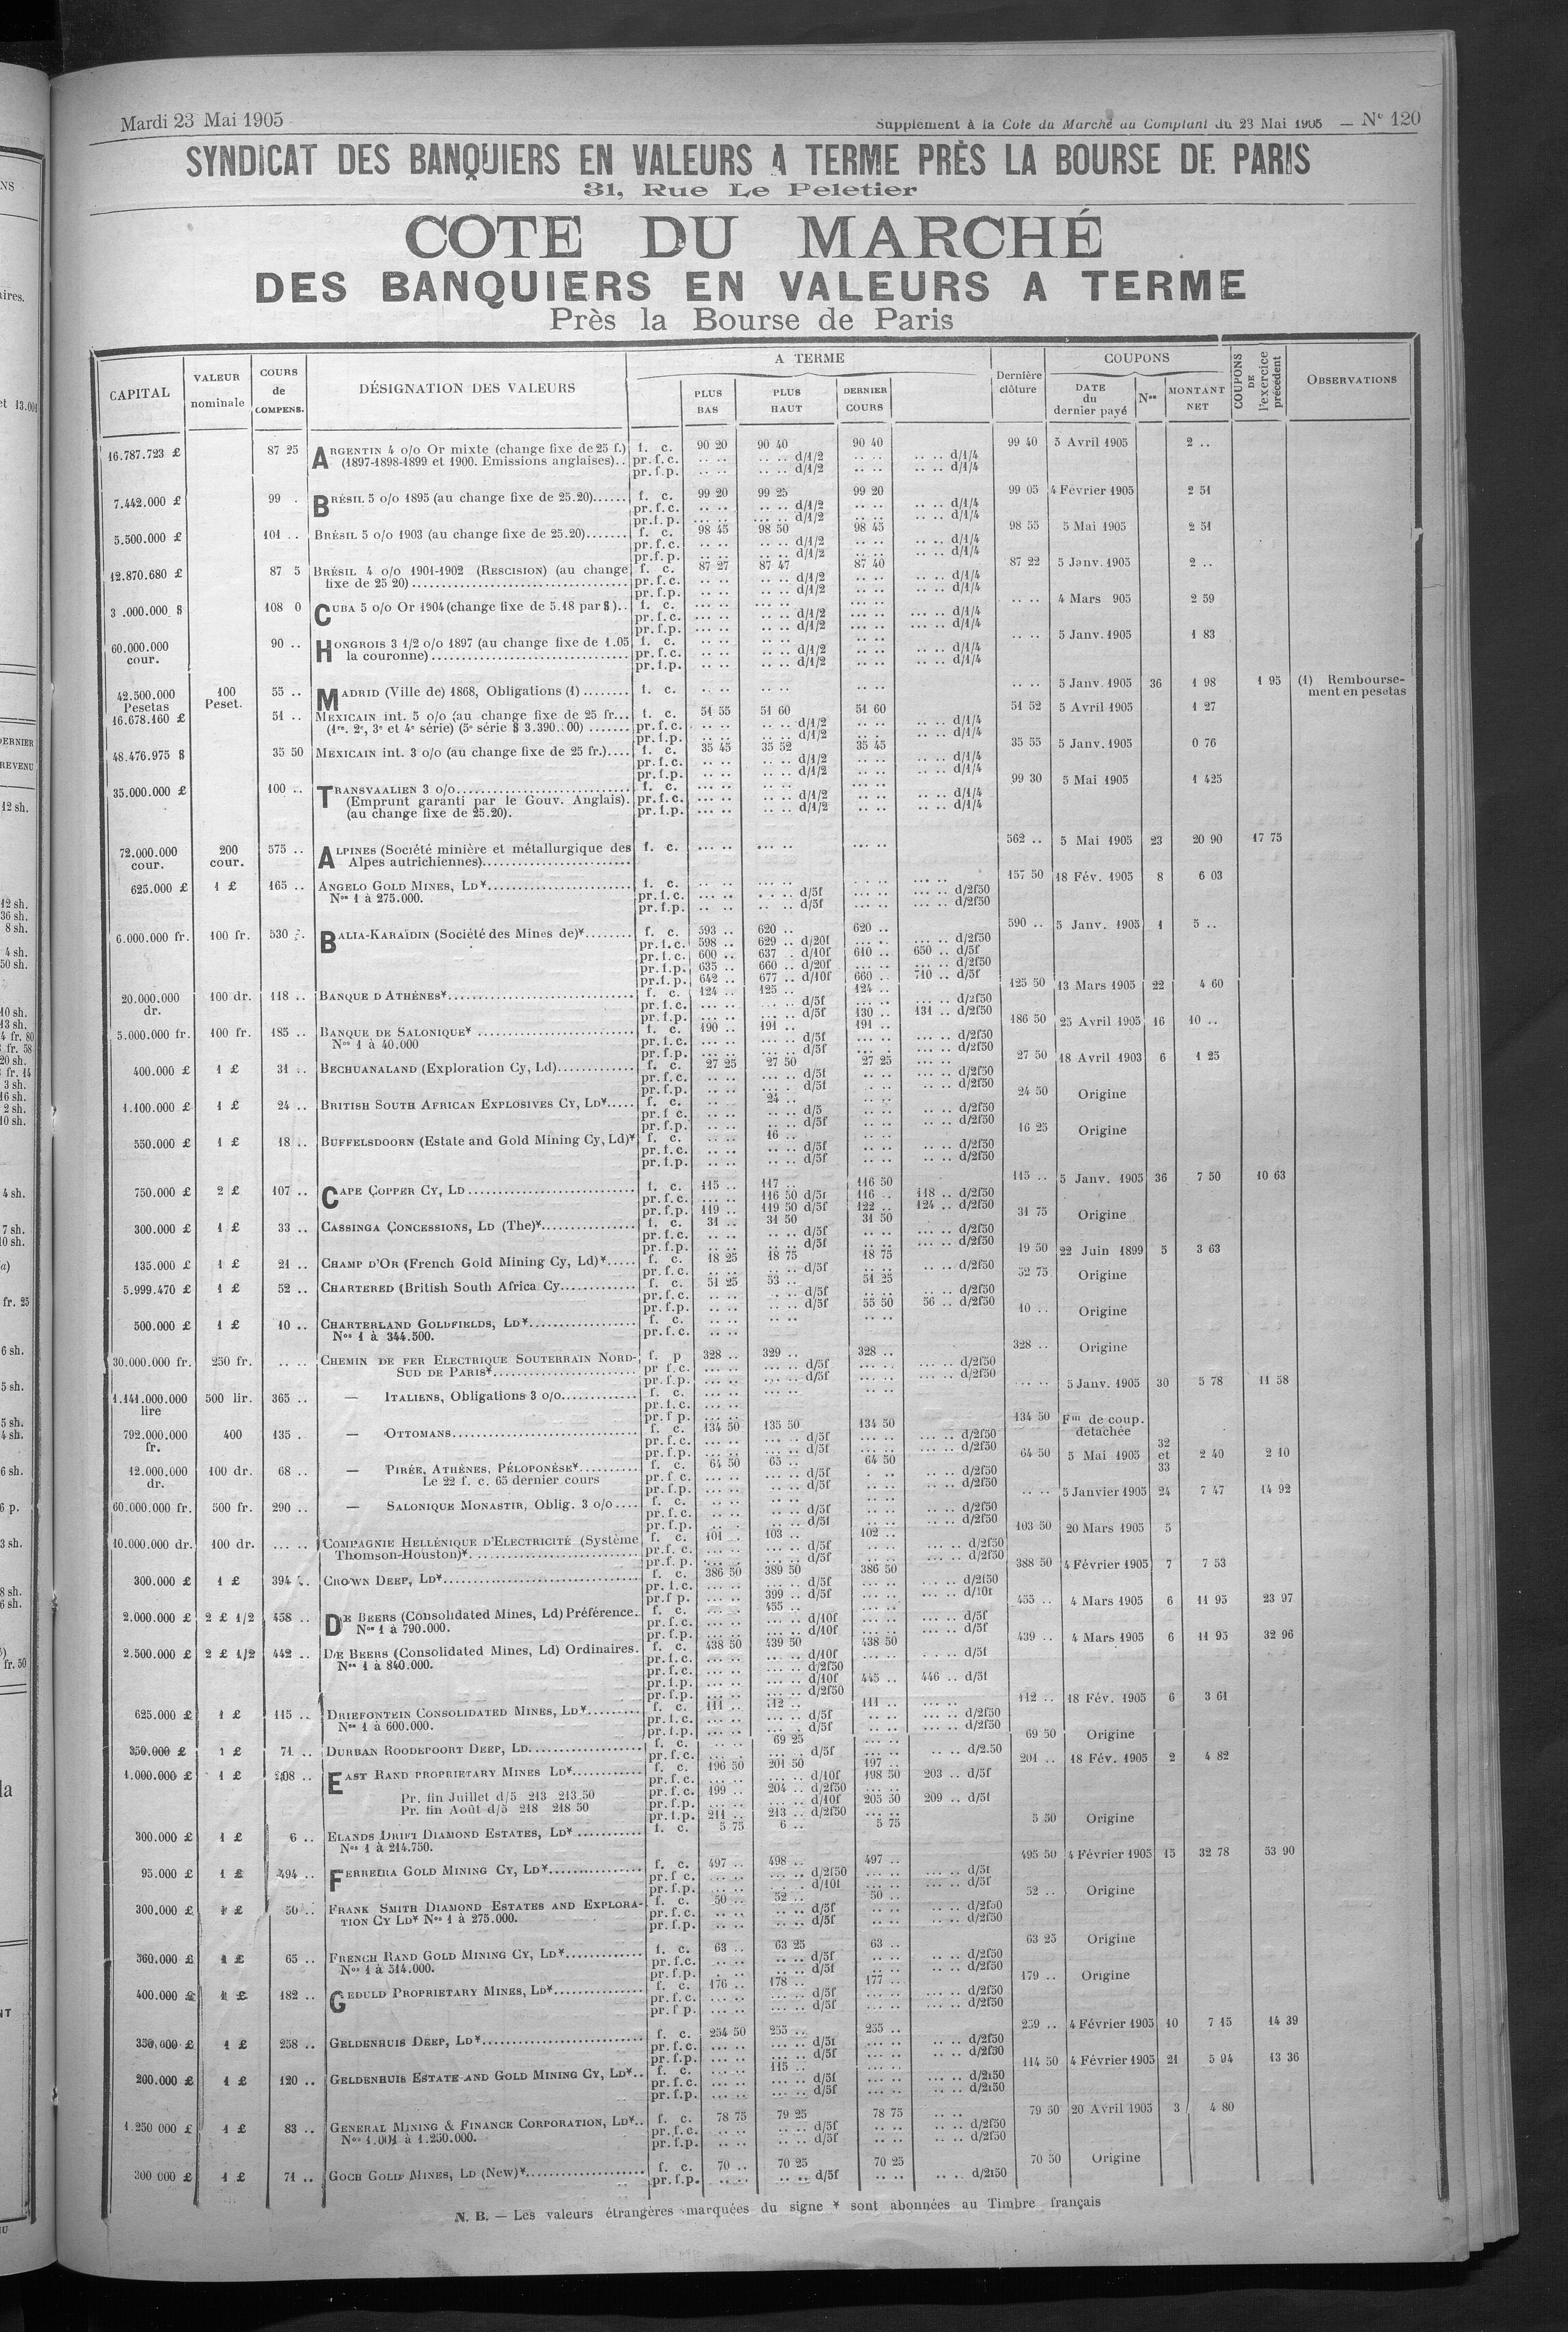 Mardi 23 Mai 1905
Supplément à la Cote du Marché au Comptant du 23 Mai 1905 — N° 120
SYNDICAT DES BANQUIERS EN VALEURS A TERME PRÈS LA BOURSE DE PARIS
31, Rue Le Peletier
COTE DU MARCHÉ
DES BANQUIERS EN VALEURS A TERME
Près la Bourse de Paris
CAPITAL
VALEUR nominale
COURS de COMPENS.
DÉSIGNATION DES VALEURS
A TERME
PLUS BAS
PLUS HAUT
DERNIER COURS
Dernière clôture
COUPONS
DATE du dernier payé
Nos
MONTANT NET
COUPONS DE l'exercice précédent
OBSERVATIONS
16.787.723 £ 87 25 ARGENTIN 4 o/o Or mixte (change fixe de 25 f.) f. c. 90 20 90 40 90 40 99 40 5 Avril 1905 2 ..
(1897-1898-1899 et 1900. Emissions anglaises).. pr.f.c. .. .. .. .. d/1/2 .. .. .. .. d/1/4
pr.f.p. .. .. .. .. d/1/2 .. .. .. .. d/1/4
7.442.000 £ 99 . BRÉSIL 5 o/o 1895 (au change fixe de 25.20)...... f. c. 99 20 99 25 99 20 99 05 4 Février 1905 2 51
5.500.000 £ 101 .. BRÉSIL 5 o/o 1903 (au change fixe de 25.20)....... f. c. 98 45 98 50 98 45 98 55 5 Mai 1905 2 51
12.870.680 £ 87 5 BRÉSIL 4 o/o 1901-1902 (RESCISION) (au change f. c. 87 27 87 47 87 40 87 22 5 Janv. 1905 2 ..
fixe de 25 20)
3 .000.000 $ 108 0 CUBA 5 o/o Or 1904 (change fixe de 5.18 par $).. f. c. .. .. 4 Mars 905 2 59
60.000.000 cour. 90 .. HONGROIS 3 1/2 o/o 1897 (au change fixe de 1.05 f. c. .. .. 5 Janv. 1905 1 83
la couronne)
42.500.000 Pesetas 100 Peset. 55 .. MADRID (Ville de) 1868, Obligations (1) ........ f. c. .. .. 5 Janv. 1905 36 1 98 1 95 (1) Remboursement en pesetas
16.678.160 £ 51 .. MEXICAIN int. 5 o/o (au change fixe de 25 fr... f. c. 51 55 51 60 51 60 51 52 5 Avril 1905 1 27
(1re. 2e, 3e et 4e série) (5e série $ 3.390..00) .......
48.476.975 $ 35 50 MEXICAIN int. 3 o/o (au change fixe de 25 fr.).... f. c. 35 45 35 52 35 45 35 55 5 Janv. 1905 0 76
35.000.000 £ 100 .. TRANSVAALIEN 3 o/o f. c. 99 30 5 Mai 1905 1 425
(Emprunt garanti par le Gouv. Anglais).
(au change fixe de 25.20).
72.000.000 cour. 200 cour. 575 .. ALPINES (Société minière et métallurgique des f. c. 562 .. 5 Mai 1905 23 20 90 17 75
Alpes autrichiennes)
625.000 £ 1 £ 165 .. ANGELO GOLD MINES, LD¥ f. c. 157 50 18 Fév. 1905 8 6 03
Nos 1 à 275.000.
6.000.000 fr. 100 fr. 530 .. BALIA-KARAÏDIN (Société des Mines de)¥ f. c. 593 .. 620 .. 620 .. 590 .. 5 Janv. 1905 1 5 ..
pr.f.c. 598 .. 629 .. d/20f ... .. ... .. d/2f50
pr.f.c. 600 .. 637 .. d/10f 610 .. 650 .. d/5f
pr.f.p. 635 .. 660 .. d/20f ... .. ... .. d/2f50
pr.f.p. 642 .. 677 .. d/10f 660 .. 710 .. d/5f
20.000.000 dr. 100 dr. 118 .. BANQUE D'ATHÈNES¥ f. c. 124 .. 125 .. 124 .. 125 50 13 Mars 1905 22 4 60
pr.f.p. ... .. ... .. d/5f 130 .. 131 .. d/2f50
5.000.000 fr. 100 fr. 185 .. BANQUE DE SALONIQUE¥ f. c. 190 .. 191 .. 191 .. 186 50 25 Avril 1905 16 10 ..
Nos 1 à 40.000
400.000 £ 1 £ 31 .. BECHUANALAND (Exploration Cy, Ld) f. c. 27 25 27 50 27 25 27 50 18 Avril 1903 6 1 25
1.100.000 £ 1 £ 24 .. BRITISH SOUTH AFRICAN EXPLOSIVES CY, LD¥ f. c. .. .. 24 .. .. .. 24 50 Origine
550.000 £ 1 £ 18 .. BUFFELSDOORN (Estate and Gold Mining Cy, Ld)¥ f. c. .. .. 16 .. .. .. 16 25 Origine
750.000 £ 2 £ 107 .. CAPE COPPER CY, LD f. c. 115 .. 117 .. 116 50 115 .. 5 Janv. 1905 36 7 50 10 63
pr.f.c. ... .. 116 50 d/5f 116 .. 118 .. d/2f50
pr.f.p. 119 .. 119 50 d/5f 122 .. 124 .. d/2f50
300.000 £ 1 £ 33 .. CASSINGA CONCESSIONS, LD (The)¥ f. c. 31 .. 31 50 31 50 31 75 Origine
135.000 £ 1 £ 21 .. CHAMP D'OR (French Gold Mining Cy, Ld)¥ f. c. 18 25 18 75 18 75 19 50 22 Juin 1899 5 3 63
5.999.470 £ 1 £ 52 .. CHARTERED (British South Africa Cy f. c. 51 25 53 .. 51 25 52 75 Origine
pr.f.p. .. .. .. .. d/5f 55 50 56 .. d/2f50
500.000 £ 1 £ 10 .. CHARTERLAND GOLDFIELDS, LD¥ f. c. 10 .. Origine
Nos 1 à 344.500.
30.000.000 fr. 250 fr. .. .. CHEMIN DE FER ELECTRIQUE SOUTERRAIN NORD- f. p 328 .. 329 .. 328 .. 328 .. Origine
SUD DE PARIS¥
1.141.000.000 lire 500 lir. 365 .. — ITALIENS, Obligations 3 o/o f. c. 5 Janv. 1905 30 5 78 11 58
792.000.000 fr. 400 135 . — OTTOMANS f. c. 134 50 135 50 134 50 134 50 Fm de coup. détachée
12.000.000 dr. 100 dr. 68 .. — PIRÉE, ATHÈNES, PÉLOPONÈSE¥ f. c. 64 50 65 .. 64 50 64 50 5 Mai 1905 32 et 33 2 40 2 10
Le 22 f. c. 65 dernier cours
60.000.000 fr. 500 fr. 290 .. — SALONIQUE MONASTIR, Oblig. 3 o/o f. c. 5 Janvier 1905 24 7 47 14 92
10.000.000 dr. 100 dr. ... .. COMPAGNIE HELLÉNIQUE D'ELECTRICITÉ (Système f. c. 101 .. 103 .. 102 .. 103 50 20 Mars 1905 5
Thomson-Houston)¥
300.000 £ 1 £ 394 .. CROWN DEEP, LD¥ f. c. 386 50 389 50 386 50 388 50 4 Février 1905 7 7 53
pr.f.p. ... .. 399 .. d/5f ... .. ... .. d/10f
2.000.000 £ 2 £ 1/2 458 .. DE BEERS (Consolidated Mines, Ld) Préférence.. f. c. ... .. 455 .. 455 .. 4 Mars 1905 6 11 95 23 97
Nos 1 à 790.000.
2.500.000 £ 2 £ 1/2 442 .. DE BEERS (Consolidated Mines, Ld) Ordinaires. f. c. 438 50 439 50 438 50 439 .. 4 Mars 1905 6 11 95 32 96
Nos 1 à 840.000.
pr.f.p. ... .. ... .. d/10f 445 .. 446 .. d/5f
625.000 £ 1 £ 115 .. DRIEFONTEIN CONSOLIDATED MINES, LD¥ f. c. 111 .. 112 .. 111 .. 112 .. 18 Fév. 1905 6 3 61
Nos 1 à 600.000.
350.000 £ 1 £ 71 .. DURBAN ROODEPOORT DEEP, LD f. c. .. .. 69 25 69 50 Origine
1.000.000 £ 1 £ 208 .. EAST RAND PROPRIETARY MINES LD¥ f. c. 196 50 201 50 197 .. 201 .. 18 Fév. 1905 2 4 82
pr.f.c. ... .. ... .. d/10f 198 50 203 .. d/5f
Pr. fin Juillet d/5 213 213 50 pr.f.c. 199 .. 204 .. d/2f50
Pr. fin Août d/5 218 218 50 pr.f.p. ... .. ... .. d/10f 205 50 209 .. d/5f
pr.f.p. 211 .. 213 .. d/2f50
300.000 £ 1 £ 6 .. ELANDS DRIFT DIAMOND ESTATES, LD¥ f. c. 5 75 6 .. 5 75 5 50 Origine
Nos 1 à 214.750.
95.000 £ 1 £ 494 .. FERREIRA GOLD MINING CY, LD¥ f. c. 497 .. 498 .. 497 .. 495 50 4 Février 1905 15 32 78 53 90
300.000 £ 1 £ 50 .. FRANK SMITH DIAMOND ESTATES AND EXPLORA- f. c. 50 .. 52 .. 50 .. 52 .. Origine
TION CY LD¥ Nos 1 à 275.000.
360.000 £ 1 £ 65 .. FRENCH RAND GOLD MINING CY, LD¥ f. c. 63 .. 63 25 63 .. 63 25 Origine
Nos 1 à 514.000.
400.000 £ 1 £ 182 .. GEDULD PROPRIETARY MINES, LD¥ f. c. 176 .. 178 .. 177 .. 179 .. Origine
350.000 £ 1 £ 258 .. GELDENHUIS DEEP, LD¥ f. c. 254 50 255 .. 255 .. 259 .. 4 Février 1905 10 7 15 14 39
200.000 £ 1 £ 120 .. GELDENHUIS ESTATE AND GOLD MINING CY, LD¥ f. c. ... .. 115 .. 114 50 4 Février 1905 21 5 94 13 36
1.250 000 £ 1 £ 83 .. GENERAL MINING & FINANCE CORPORATION, LD¥ f. c. 78 75 79 25 78 75 79 50 20 Avril 1905 3 4 80
Nos 1.001 à 1.250.000.
300 000 £ 1 £ 71 .. GOCH GOLD MINES, LD (New)¥ f. c. 70 .. 70 25 70 25 70 50 Origine
pr.f.p. .. .. .. .. d/5f .. .. .. .. d/2f50
N. B. — Les valeurs étrangères marquées du signe ¥ sont abonnées au Timbre français